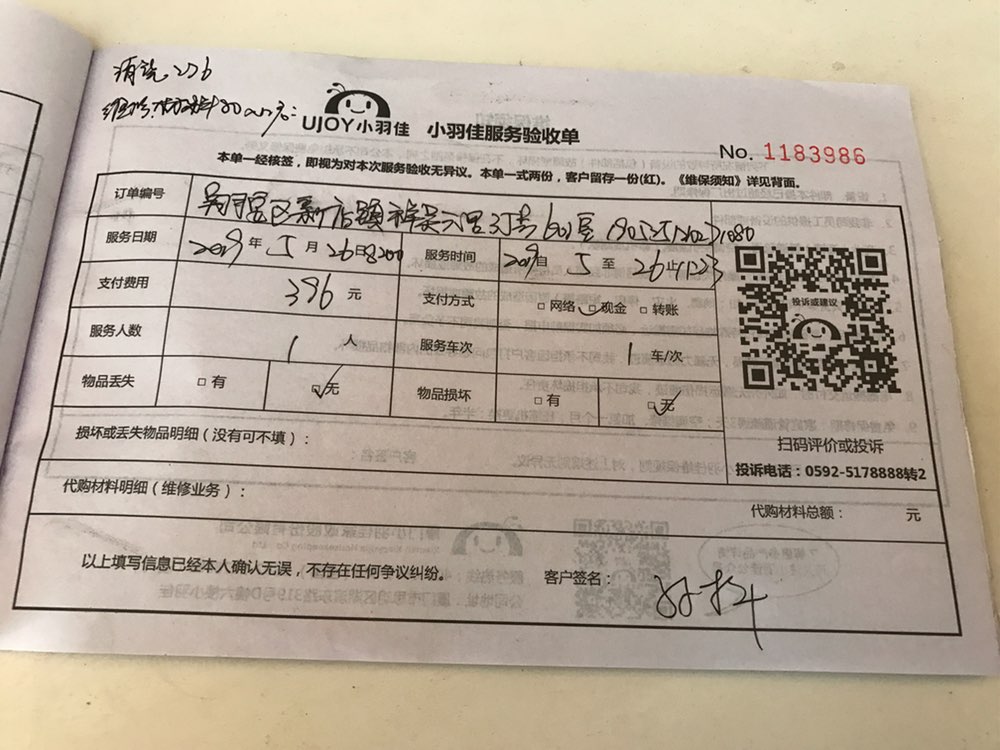 清洗:276
UJOY小羽佳 小羽佳服务验收单
No. 1183986
本单一经核签，即视为对本次服务验收无异议。本单一式两份，客户留存一份(红)。《维保须知》详见背面。
订单编号 区新店镇
服务日期 2019 年 5 月 26 日 服务时间 2019 自 5 至 26 止
支付费用 396 元 支付方式 □网络 □现金 □转账
投诉或建议
服务人数 1 人 服务车次 1 车/次
物品丢失 □有 ☑无 物品损坏 □有 ☑无
损坏或丢失物品明细（没有可不填）：
扫码评价或投诉
投诉电话：0592-5178888转2
代购材料明细（维修业务）：
代购材料总额： 元
以上填写信息已经本人确认无误，不存在任何争议纠纷。 客户签名：